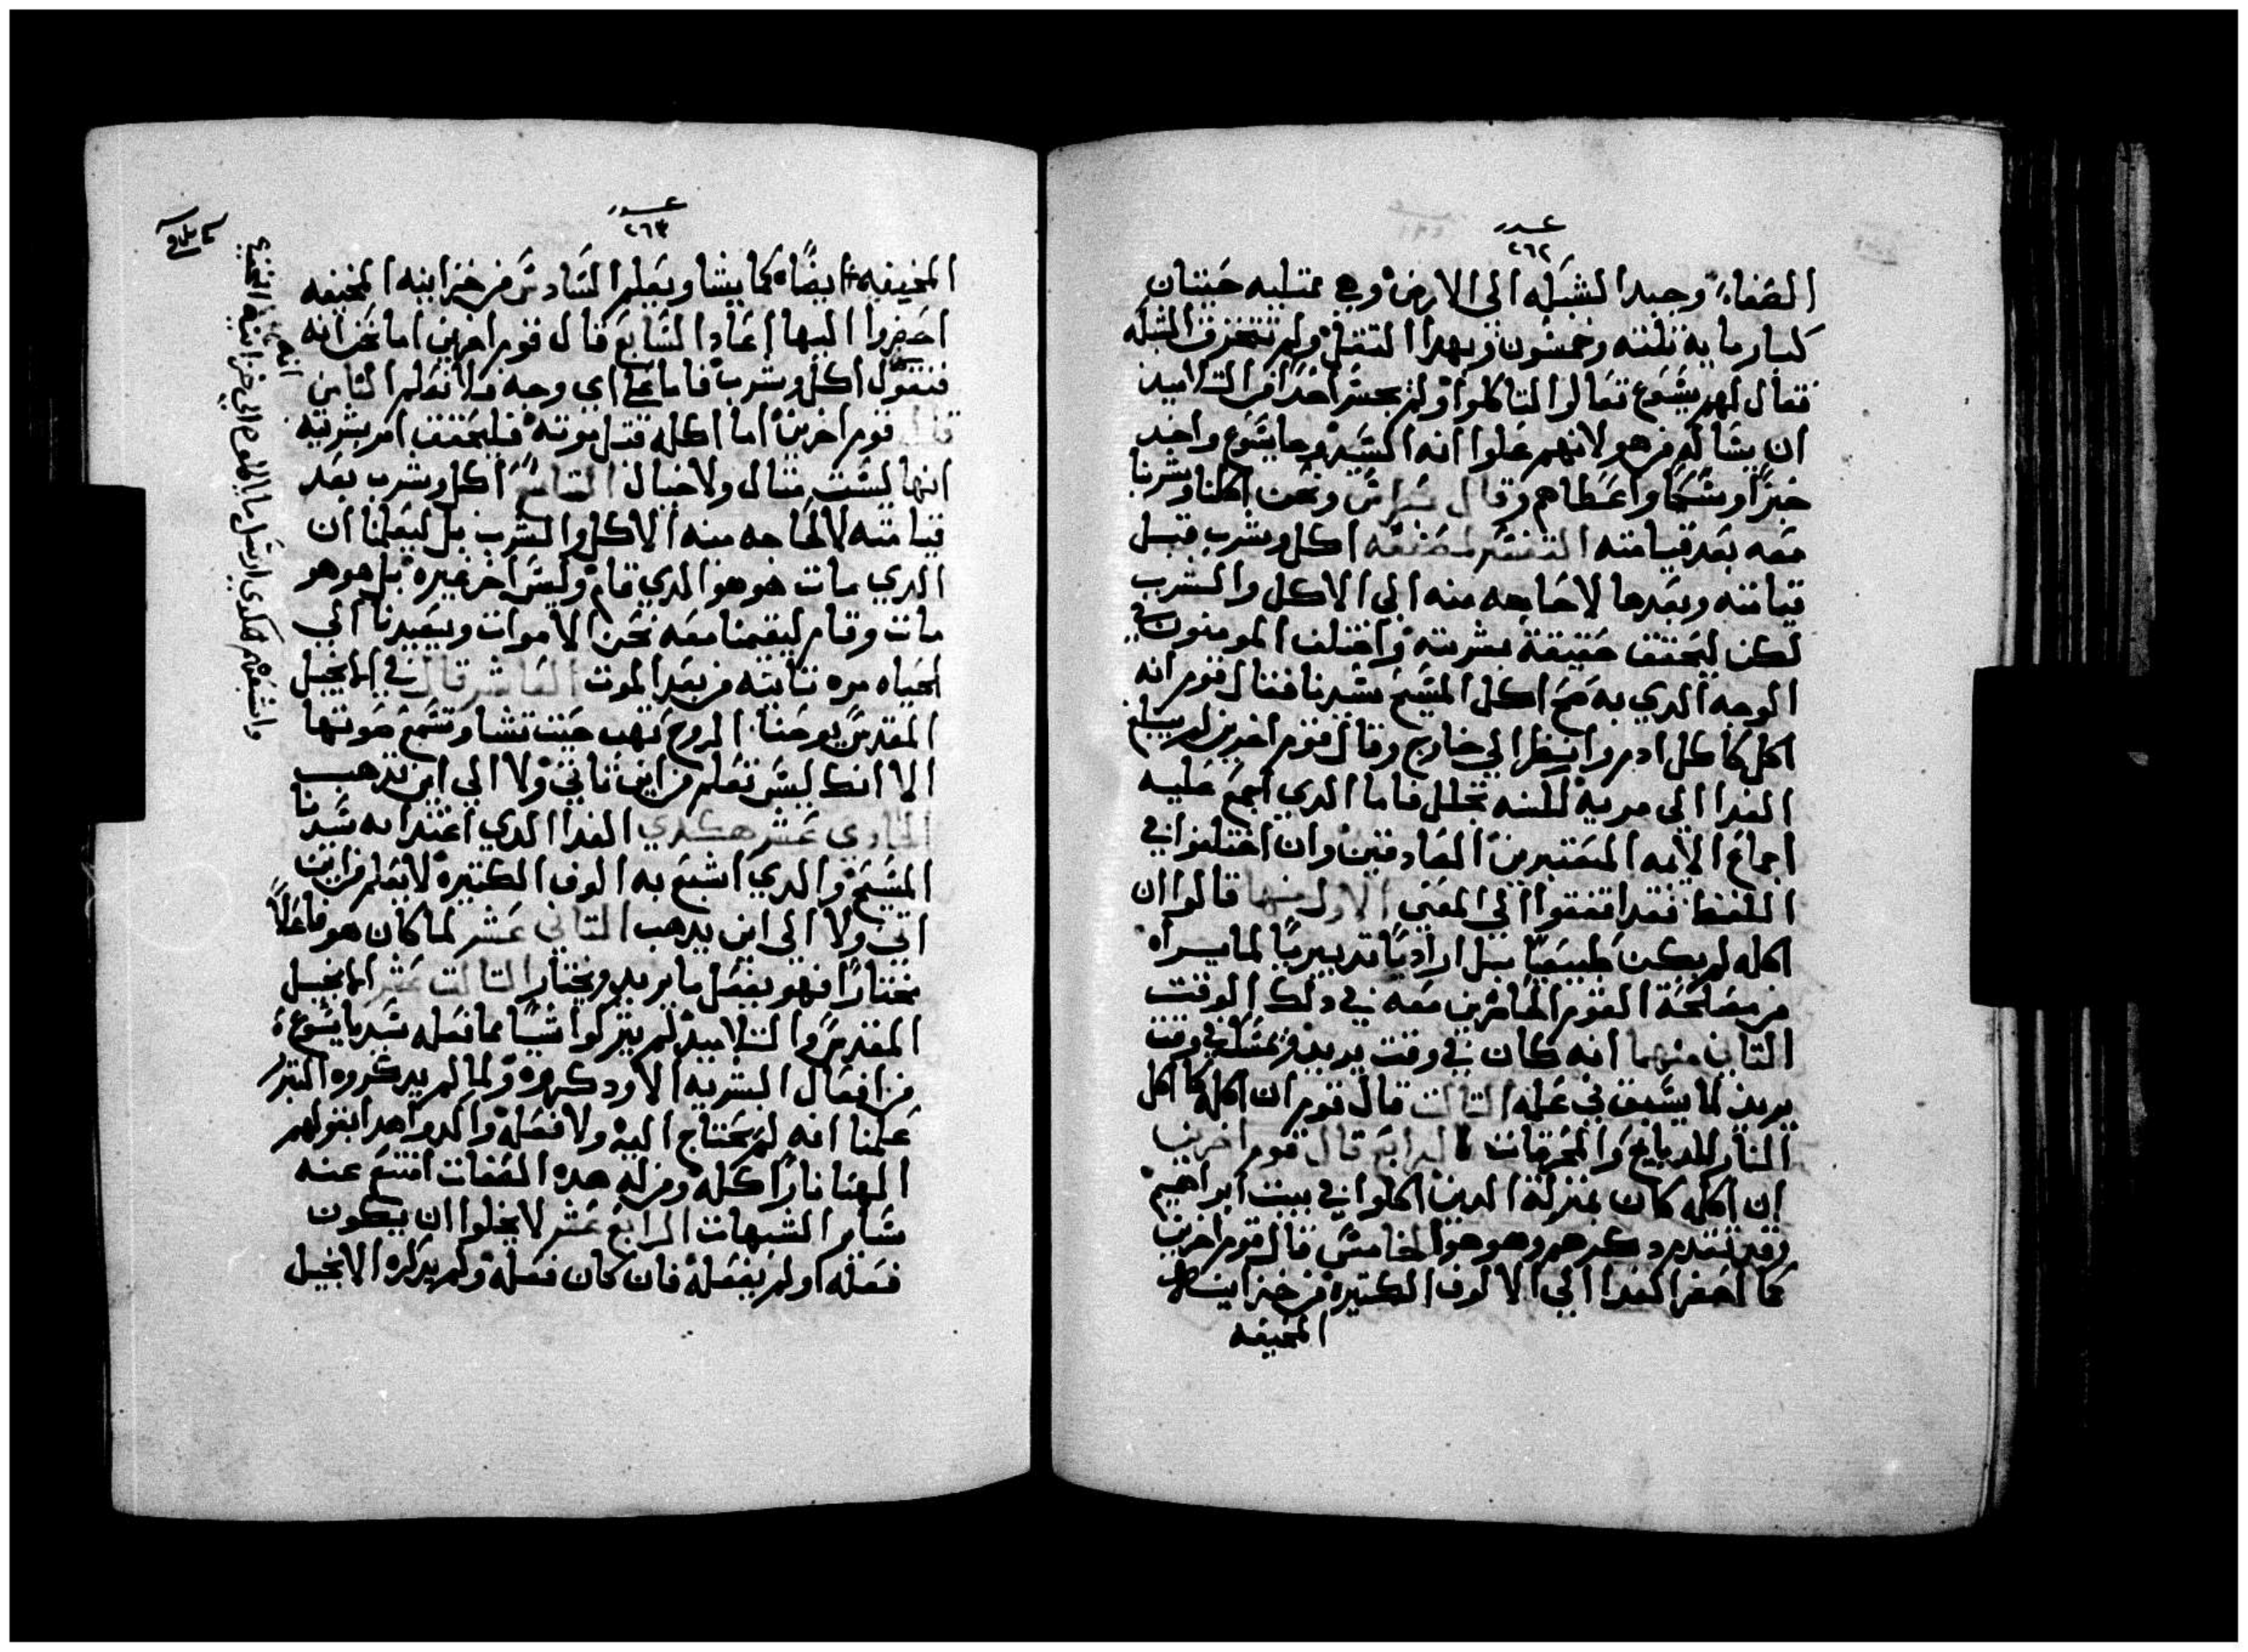 عدد
٢٦٢
الصفاء وجبد الشبكه الى الارض وهي ممتليه حيتان
كبار مايه تلته وخمسون وبهدا التتقل ولم تتخرق الشبكه
فقال لهم يسوع تعالوا لتاكلوا ولم يجسر احدًا من التلاميد
ان يساله من هو لانهم علموا انه السيد وجا يسوع واخد
خبزًا وسمكًا واعطاهم وقال بطرس ونحن اكلنا وشربنا
معه بعد قيامته التفسير اكل وشرب قبل
قيامته وبعدها لا حاجه منه الى الاكل والشرب
لكن ليحقق حقيقة بشريته واختلف المومنون في
الوجه الدي به صح اكل المسيح سيدنا فقال قوم انه
اكل كاكل ادم وانظر الي خارج وقال قوم اخرين لم يبلغ
الغدا الى مريه لكنه تحلل فاما الدي اجمع عليه
اجماع الايمه المعتبرين الصادقين وان اختلفوا في
اللفظ فقد اتفقوا في المعني الاول منها قالوا ان
اكله لم يكن طبيعيًا بل اراديًا تدبيريًا لما يراه
من مصلحة القوم الحاضرين معه في دلك الوقت
التاني منهما انه كان في وقت يريد ويمسك في وقت
يريد لما يسبق في علمه التالت قال قوم ان اكله كاكل
النار للدبايح والمحرقات الرابع قال قوم اخرين
ان اكله كان بمنزلة الدين اكلوا في بيت ابراهيم
وقد تقدم دكرهم وهو هو الخامس قال قوم اخرين
كما احضر الغدا الي الالوف الكتيره من خزاينه
المخيفه
عدد
٢٦٣
المخيفه ايضًا كما يشا ويعلم السادس من خزاينه المخيفه
احضروا اليها اعاد السابع قال قوم اخرين اما نحن انه
فنقول اكل وشرب فاما على اي وجه فلا نعلم التامن
قال قوم اخرين اما اكله قبل موته فليحقق امر بشريته
انها ليست متال ولا خيال التاسع اكل وشرب بعد
قيامته لا لحاجه منه الاكل والشرب بل ليعلمنا ان
الدي مات هو هو الدي قام وليس اخر غيره بل هو هو
مات وقام ليقيمنا معه نحن الاموات ويعيدنا الي
الحياه مره تانيه من بعد الموت العاشر قال في الانجيل
المقدس يوحنا الروح تهب حيت تشا وتسمع صوتها
الا انك ليس تعلم من اين تاتي ولا الى اين تدهب
الحادي عشر هكدي الغدا الدي اغتدا به سيدنا
المسيح والدي اشبع به الوف الكتيره لا يعلم من اين
اتى ولا الى اين يدهب التاني عشر لما كان هو فاعلاً
مختارًا فهو يفعل ما يريد ويختار التالت عشر الانجيل
المقدس والتلاميد لم يتركوا شيًا مما فعله سيدنا يسوع
من افعال البشريه الا ودكروه ولما لم يدكروه البتر
علمنا انه لم يحتاج اليه ولا فعله والدوا هدا بقولهم
الهنا نارًا اكله ومن له هده الصفات امتنع عنه
ساير الشبهات الرابع عشر لا يخلوا ان يكون
فعله او لم يفعله فان كان فعله ولم يدكره الانجيل